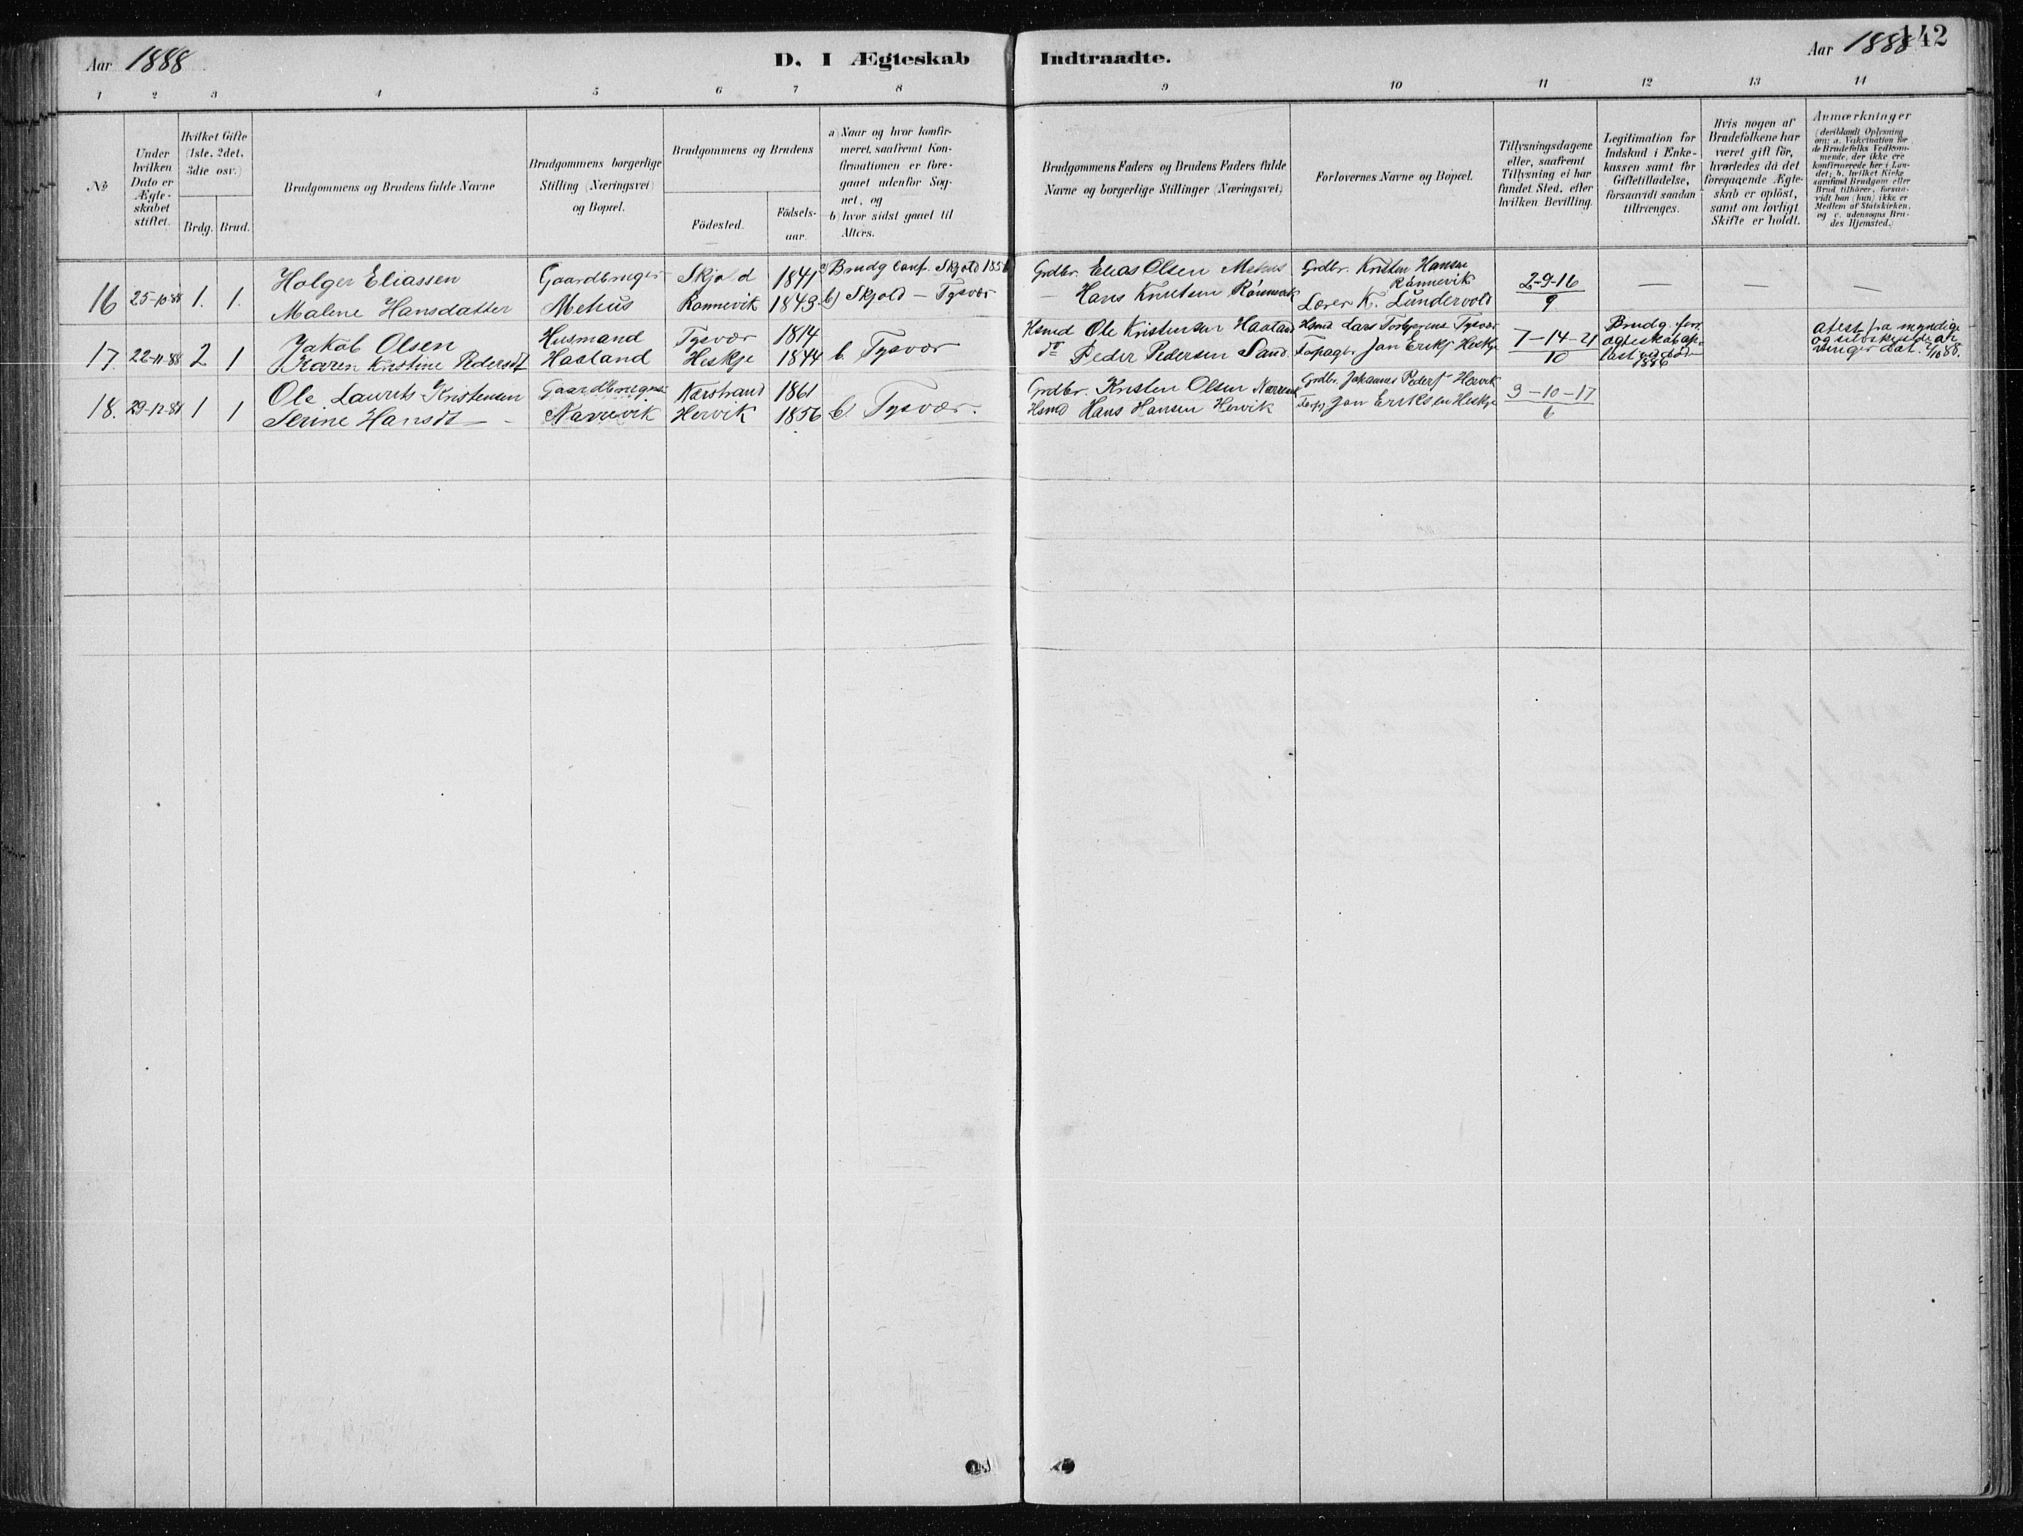 Aar 1888
D. I Ægteskab
Indtraadte.
Aar 1888
142
1 2 3 4 5 6 7 8 9 10 11 12 13 14
No
Under
hvilken
Dato er
Ægte-
skabet
stiftet.
Hvilket Gifte
(1ste, 2det,
3die osv.)
Brdg. Brud.
Brudgommens og Brudens fulde Navne
Brudgommens borgerlige
Stilling (Næringsvei)
og Bopæl.
Brudgommens og Brudens
Födested.
Födsels-
aar.
a) Naar og hvor konfir-
meret, saafremt Kon-
firmationen er fore-
gaaet udenfor Sog-
net, og
b) hvor sidst gaaet til
Alters.
Brudgommens Faders og Brudens Faders fulde
Navne og borgerlige Stillinger (Næringsvei)
Forlovernes Navne og Bopæl.
Tillysningsdagene
eller, saafremt
Tillysning ei har
fundet Sted, efter
hvilken Bevilling.
Legitimation for
Indskud i Enke-
kassen samt for
Giftetilladelse,
forsaavidt saadan
tiltrænges.
Hvis nogen af
Brudefolkene har
været gift för,
hvorledes da det
foregaaende Ægte-
skab er oplöst,
samt om lovligt
Skifte er holdt.
Anmærkninger
(deriblandt Oplysning
om: a. Vakcination for
de Brudefolks Vedkom-
mende, der ikke ere
konfirmerede her i Lan-
det; b. hvilket Kirke-
samfund Brudgom eller
Brud tilhörer, forsaa-
vidt han (hun) ikke er
Medlem af Statskirken,
og c. udensogns Bru-
des Hjemsted.)
16 25-10-88 1. 1.
Holger Eliassen
Malene Hansdatter
Gaardbruger
Mehus
Skjold 1841
Rønnevik 1843
a) Brudg conf. Skjold 185
b) Skjold – Tysvær
Grdbr. Elias Olsen Mehus
— Hans Knutsen Rønnevik
Grdbr. Kristen Hansen
Rønnevik
Lærer K. Lundervold
2-9-16
9
— — —
17. 22-11-88 2 1
Jakob Olsen
Karen Kristine Pedersdt
Husmand
Haaland
Tysvær 1814
Heskje 1844
b. Tysvær
Hsmd Ole Kristensen Haaland
do Peder Pedersen Sand.
Hsmd Lars Torbjørns Tysvær
Jan Eriks Heskje
7-14-21
10
Brudg. for.
ægteskab op-
løst ved død
1886
atest fra myndige
18. 29-12-88 1 1
Ole Laurits Kristensen
Serine Hansdt
Gaardbruger
Nærevik
Nærstrand 1861
Hervik 1856
b) Tysvær.
Grdbr. Kristen Olsen
Hsmd Hans Hansen Hervik
Grdbr. Johannes Peders Hervik
Jan Eriksen Heskje
3-10-17
6